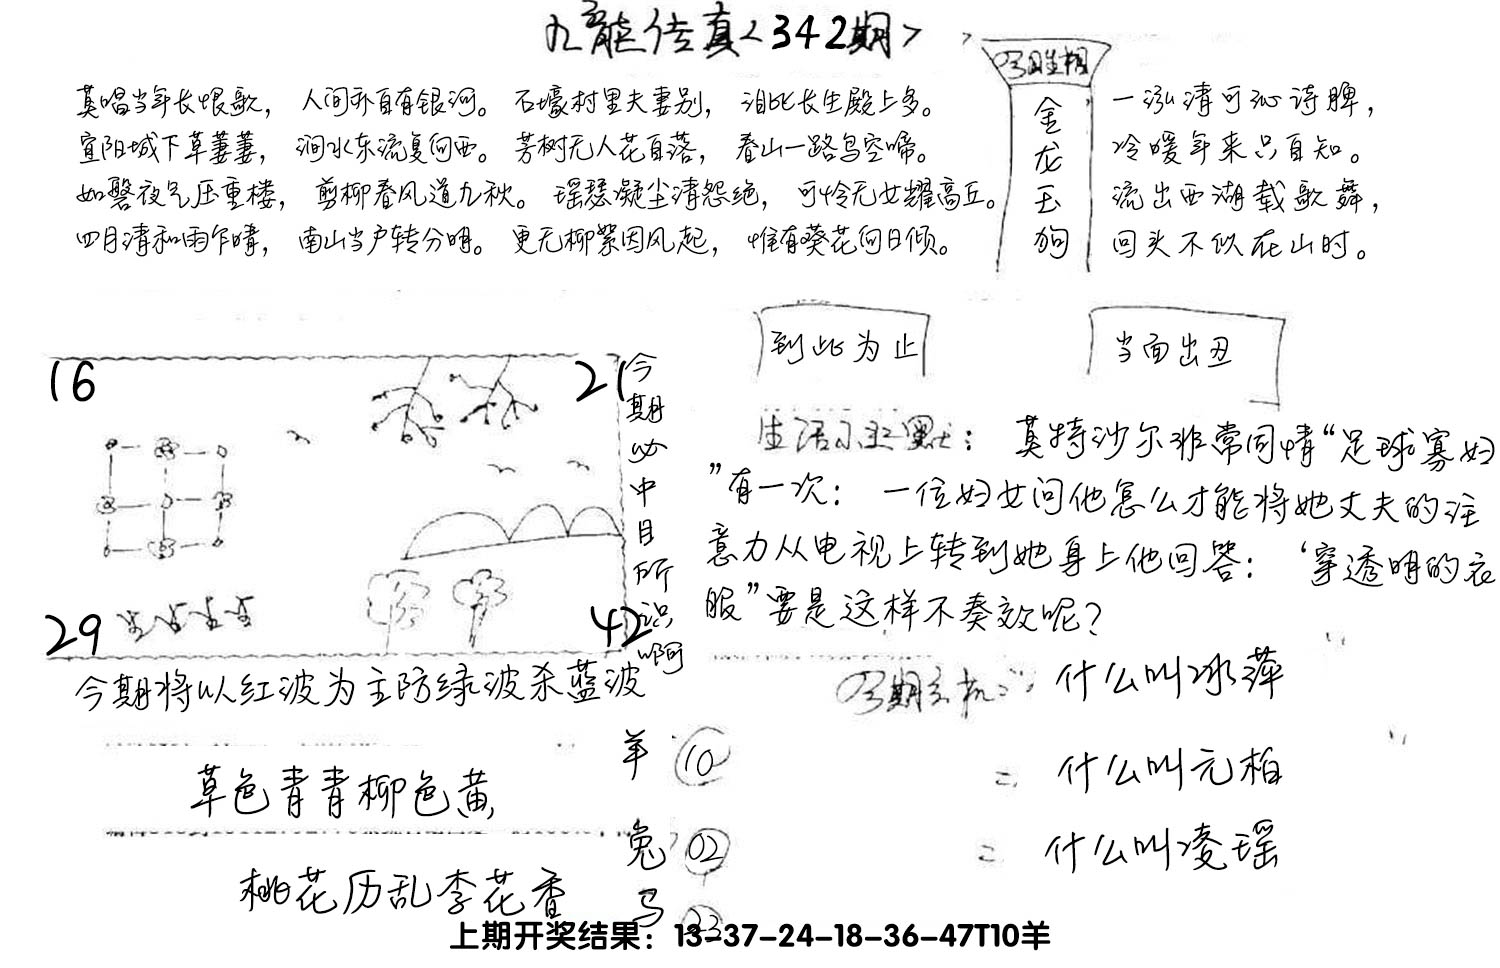 九龙传真<342期>
莫唱当年长恨歌，人间亦自有银河。石壕村里夫妻别，泪比长生殿上多。
宜阳城下草萋萋，涧水东流复向西。芳树无人花自落，春山一路鸟空啼。
如磐夜气压重楼，剪柳春风道九秋。瑶瑟凝尘清怨绝，可怜无女耀高丘。
四月清和雨乍晴，南山当户转分明。更无柳絮因风起，惟有葵花向日倾。
今日生相
金龙玉狗
一泓清可沁诗脾，
冷暖年来只自知。
流出西湖载歌舞，
回头不似在山时。
到此为止
当面出丑
16
21
29
42
今期必中目所识啊
生活小幽默：莫特沙尔非常同情“足球寡妇
”有一次：一位妇女问他怎么才能将她丈夫的注
意力从电视上转到她身上他回答：‘穿透明的衣
服”要是这样不奏效呢？
今期将以红波为主防绿波杀蓝波
草色青青柳色黄
桃花历乱李花香
羊 10
兔 02
马 23
今期玄机一：什么叫冰萍
二 什么叫元柏
三 什么叫凌瑶
上期开奖结果：13-37-24-18-36-47T10羊